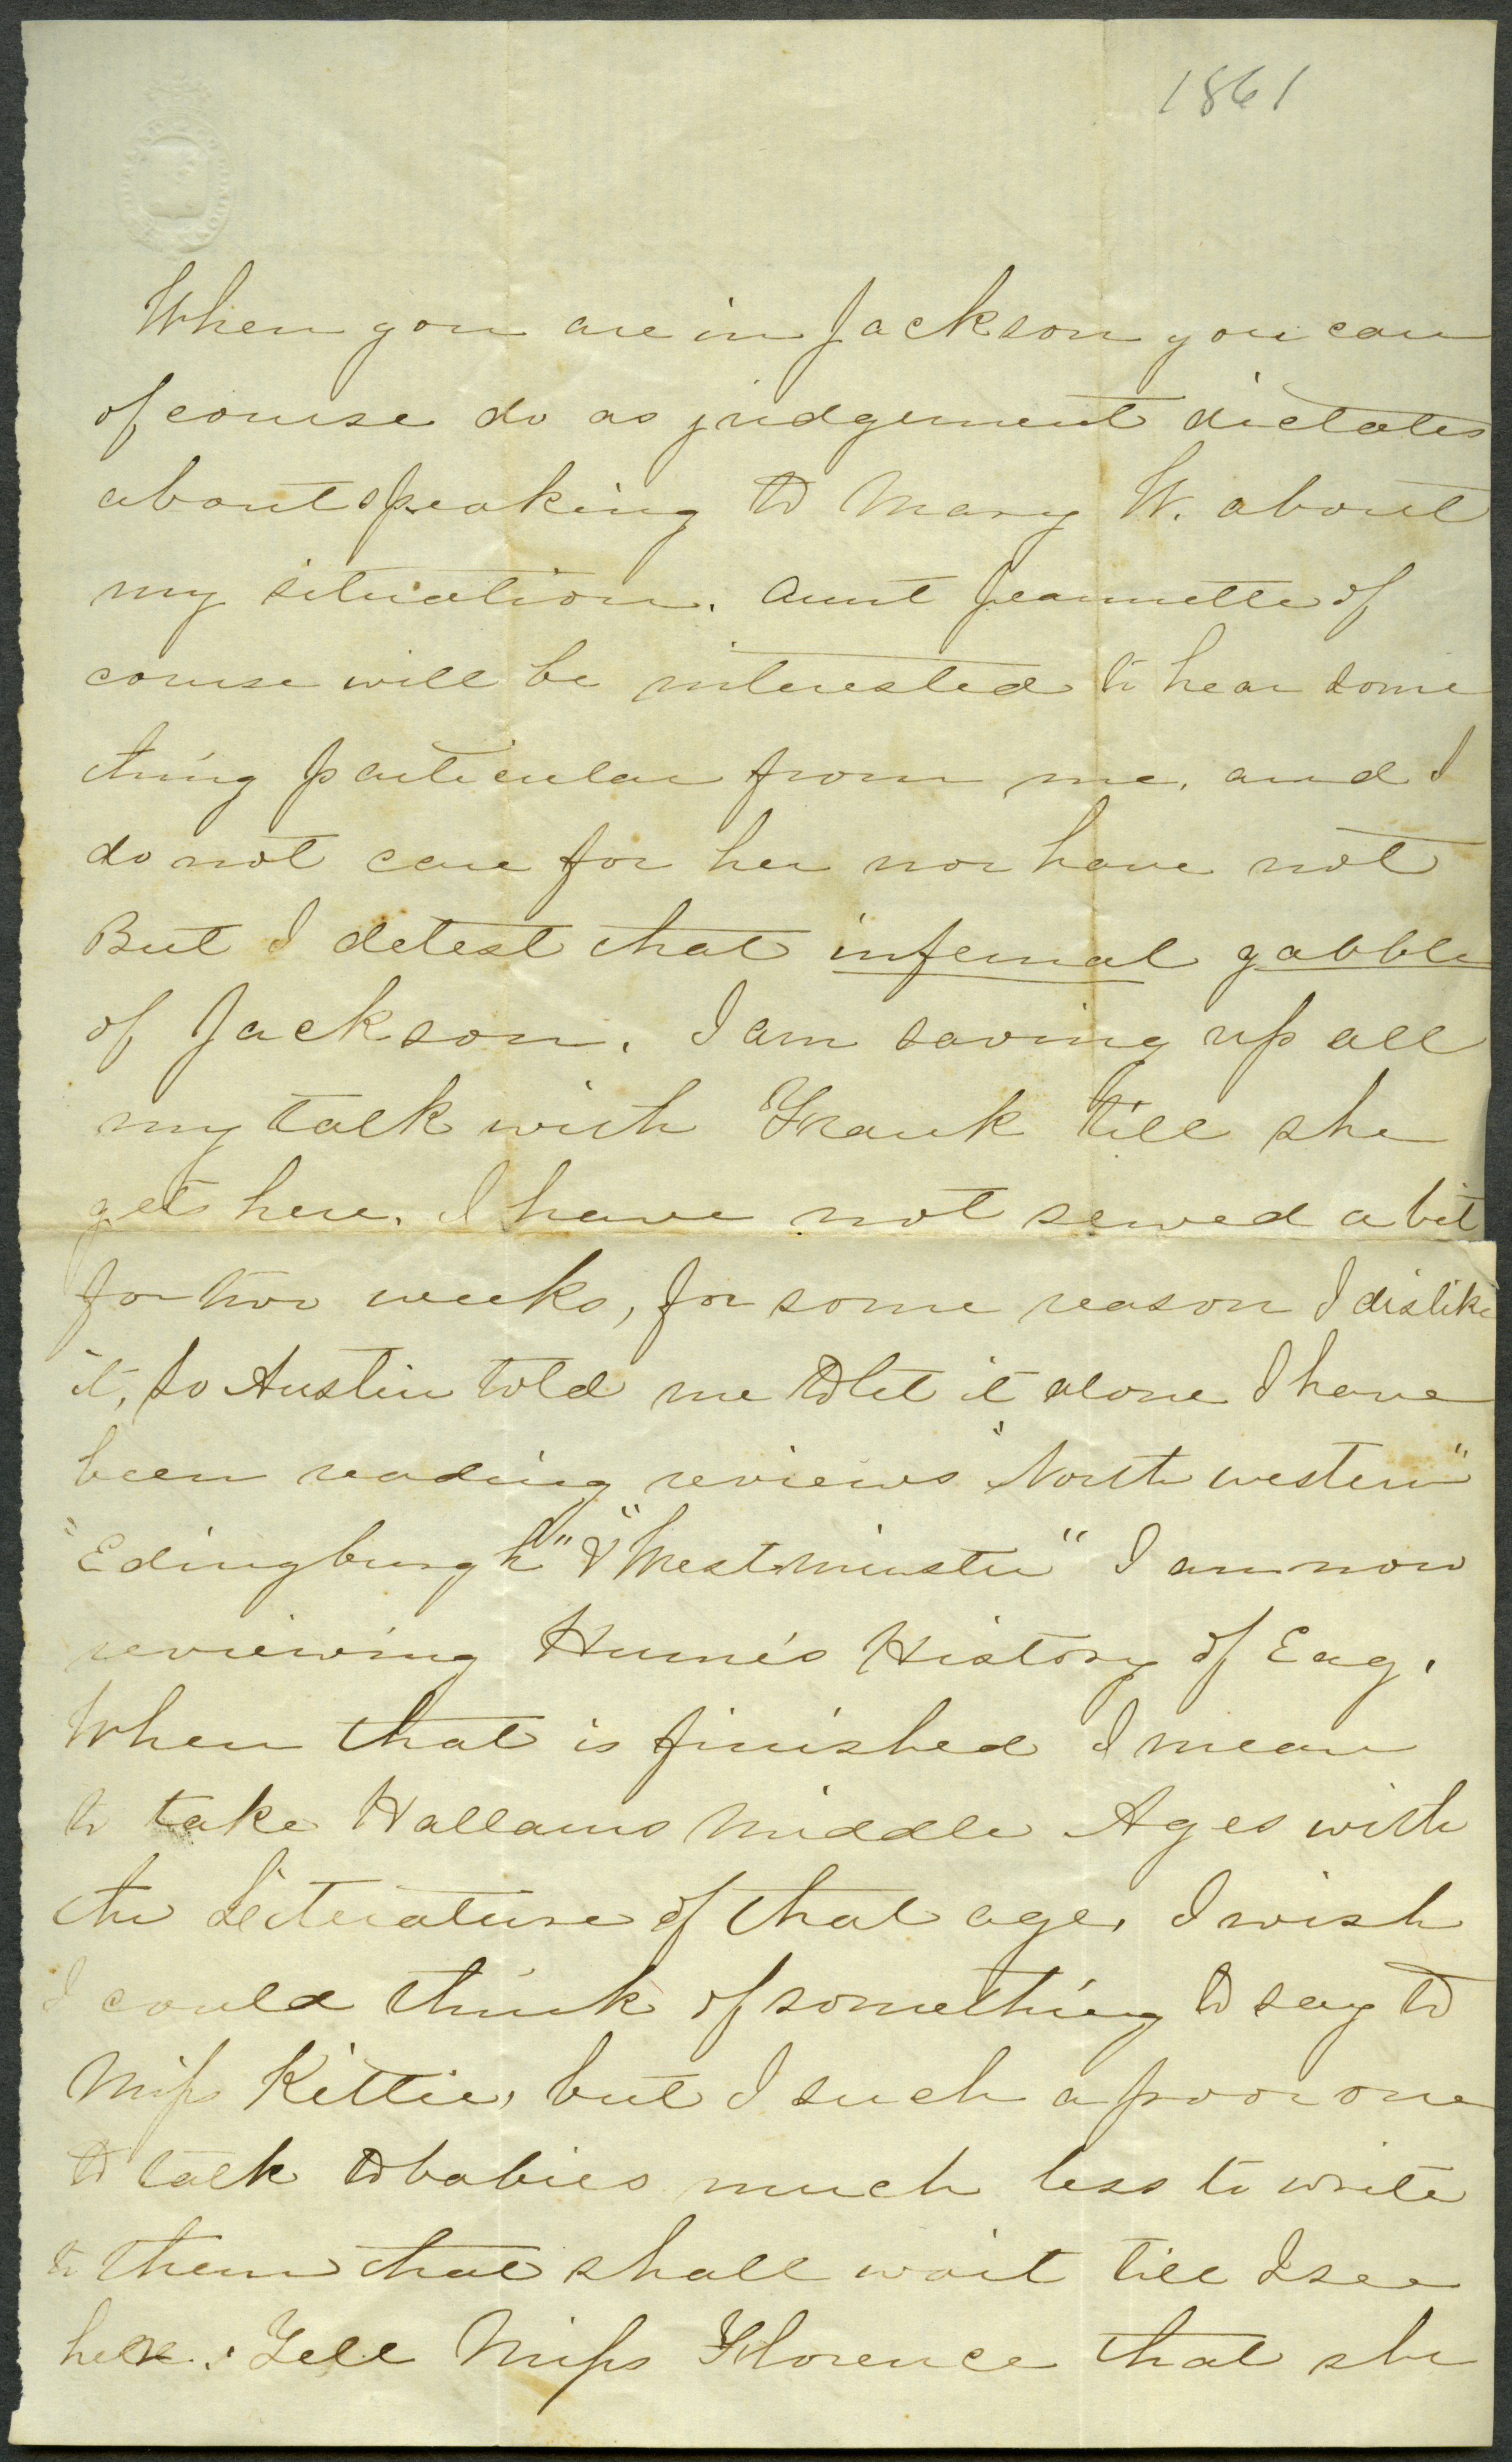 1861
When you are in Jackson you can
of course do as judgement dictates
about speaking to Mary W. about
my situation. Aunt Jeannette of
course will be interested to hear some
thing particular from me, and I
do not care for her nor have not
But I detest that infernal gabble
of Jackson. I am saving up all
my talk with Frank till she
get here. I have not sewed a bit
for two weeks, for some reason I dislike
it, so Austin told me to let it alone I have
been reading reviews "North western"
"Edingburgh" & "Westminster" I am now
reviewing Hume's History of Eng.
When that is finished I mean
to take Hallams Middle Ages with
the Literature of that age, I wish
I could think of something to say to
Miss Kittie, but I such a poor one
to talk to babies much less to write
to them that shall wait till I see
her. Tell Miss Florence that she